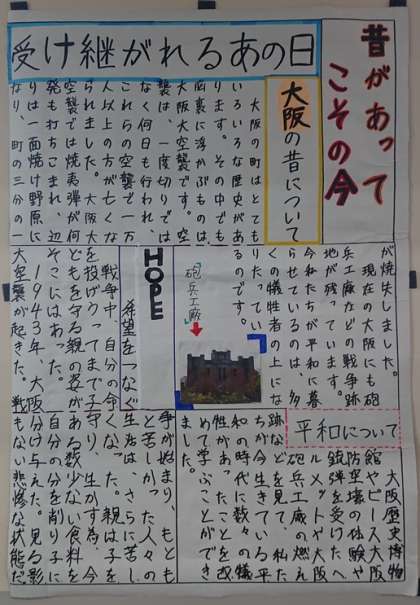 受け継がれるあの日
昔があって
こその今
大阪の昔について
大阪の町はとても
いろいろな歴史があ
ります。その中でも
脳裏に浮かぶものは
大阪大空襲です。空
襲は、一度切りでは
なく何日も行われ、
これらの空襲で一万
人以上の方が亡くな
られました。大阪大
空襲では焼夷弾が何
発も打ちこまれ、辺
りは一面焼け野原に
なり、町の三分の一
が焼失しました。
現在の大阪にも砲
兵工廠などの戦争跡
地が残っています。
今私たちが平和に暮
らせているのは、多
くの犠牲者の上にな
りたっている
のです。
砲兵工廠
平和について
大阪歴史博物
館やピース大阪
で防空壕の体験や
銃弾を受けたヘ
ルメットや大阪
砲兵工廠の燃え
跡などを見て、私た
ちが今生きている平
和の時代に数々の犠
牲があったことを改
めて学ぶことができ
ました。
HOPE
希望をつなぐ
戦争中、自分の命
を投げうってまで子
どもを守る親の姿が
そこにはあった。
1943年、大阪
大空襲が起きた。戦
争が始まり、もとも
と苦しかった人々の
生活は、さらに苦し
くなった。親は子を
守り、生かす為、今
ある数少ない食料を
自分の分を削り子に
分け与えた。見る影
もない悲惨な状態だ